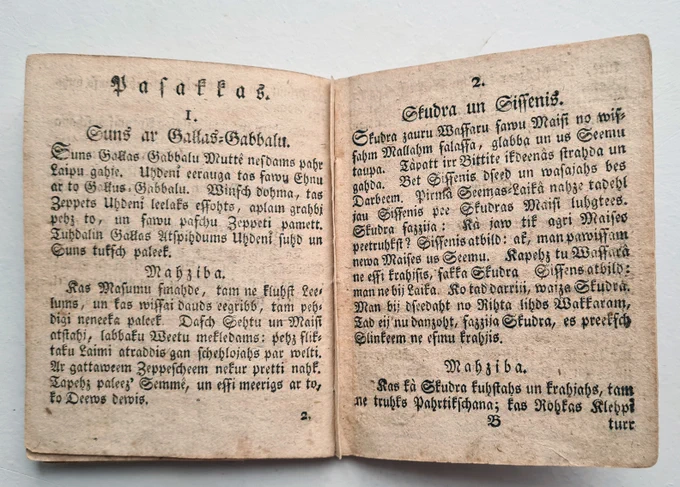 Pasakkas.
1.
Suns ar Gaļļas-Gabbalu.
Suns Gaļļas-Gabbalu Muttê nesdams pahr
Laipu gahje. Uhdenî eerauga tas sawu Ehnu
ar to Gaļļas-Gabbalu. Winsch dohma, tas
Zeppets Uhdenî leelaks essohts, aplam grahbj
pehz to, un sawu paschu Zeppeti pamett.
Tuhdalin Gaļļas Atspihdums Uhdenî suhd un
Suns tuksch paleek.
Mahziba.
Kas Masumu smahde, tam ne kluhst Lee-
lums, un kas wissai dauds eegribb, tam peh-
digi neneeka paleek. Dasch Sehtu un Maisi
atstahj, labbaku Weetu mekledams: pehz slik-
taku Laimi atraddis gan schehlojahs par welti.
Ar gattaweem Zeppescheem nekur pretti nahk.
Tapehz paleez' Semmê, un essi meerigs ar to,
ko Deews dewis.
2.
2.
Skudra un Sissenis.
Skudra zauru Wassaru sawu Maisi no wis-
sahm Mallahm salassa, glabba un us Seemu
taupa. Tàpatt irr Bittite ikdeenàs strahda un
gahda. Bet Sissenis dseed un wasajahs bes
Darbeem. Pirmâ Seemas-Laikâ nahze tadehl
jau Sissenis pee Skudras Maisi luhgtees.
Skudra sazzija: Kà jaw tik agri Maises
peetruhkst? Sissenis atbild: ak, man pawissam
newa Maises us Seemu. Kapehz tu Wassarâ
ne essi krahjsis, sakka Skudra Sissens atbild:
man ne bij Laika. Ko tad darriji, waiza Skudra.
Man bij dseedaht no Rihta lihds Wakkaram,
Tad eij' nu danzoht, sazzija Skudra, es preeksch
Slinkeem ne esmu krahjis.
Mahziba.
Kas kà Skudra kuhstahs un krahjahs, tam
ne truhks Pahrtikschana; kas Rohkas Klehpî
B turr